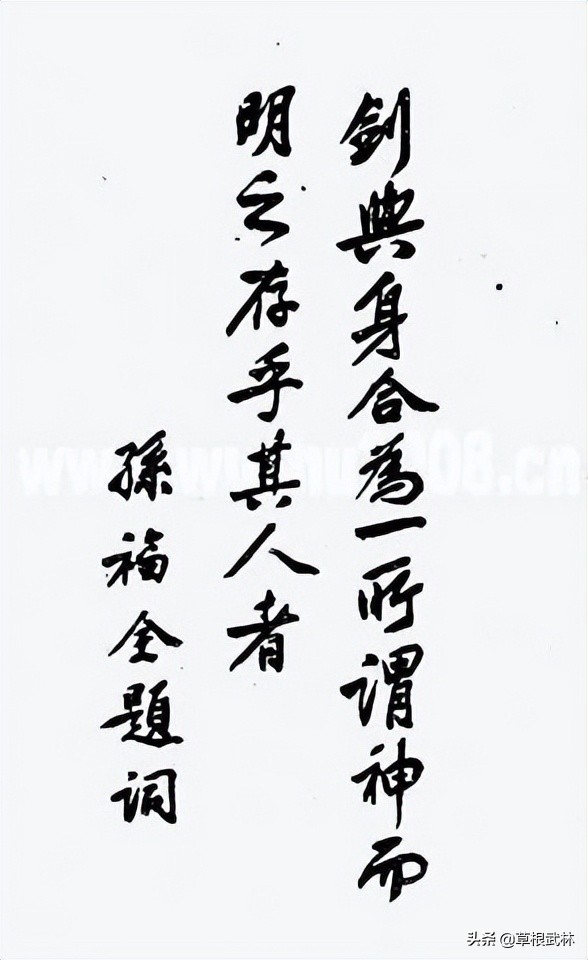 劍與身合為一所謂神而
明之存乎其人者
孫福全題詞
www.wushu2008.cn
头条 @草根武林